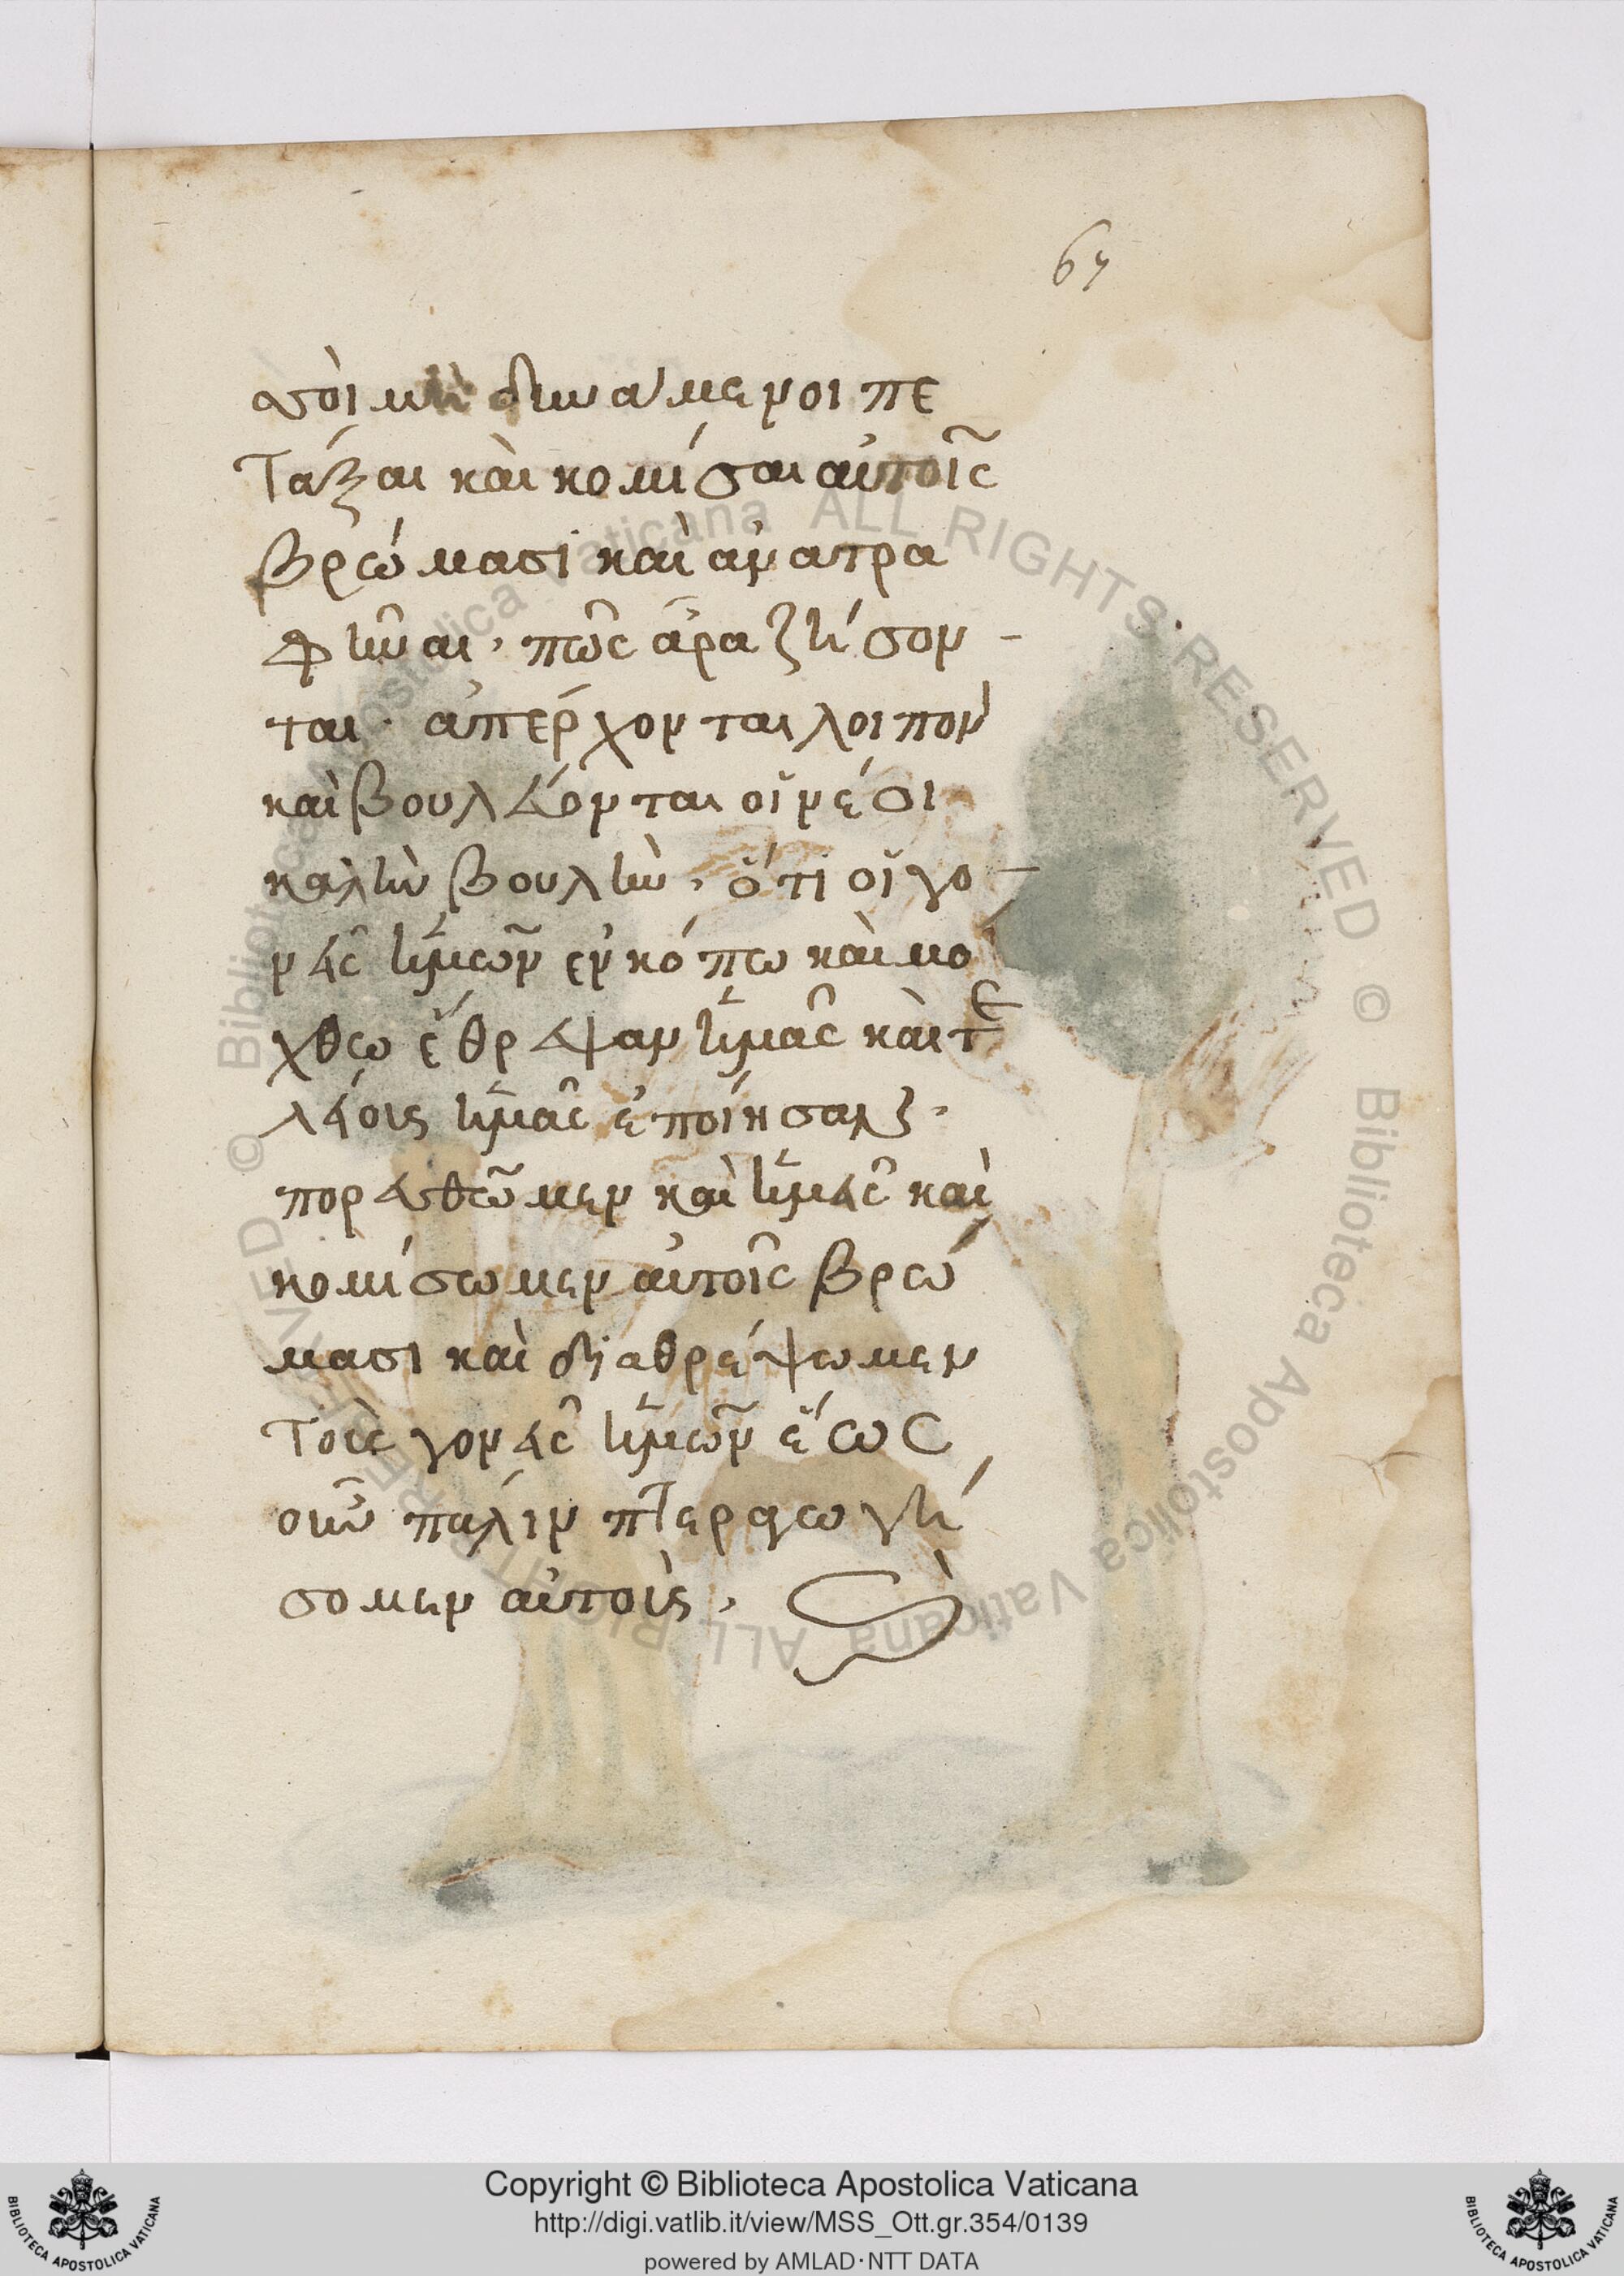 67
αυτοὶ μὴ δυνάμενοι πε
τάξαι καὶ κομίσαι αὐτοῖς
βρώμασι καὶ ἀνατρα
φῆναι, πῶς ἆρα ζήσον -
ται. ἀπέρχονται λοιπὸν
καὶ βουλεύονται οἱ νέοι
καλὴν βουλὴν, ὅτι οἱ γο -
νεῖς ἡμῶν ἐν κόπω καὶ μο
χθω ἔθρεψαν ἡμᾶς καὶ τε
λείους ἡμᾶς ἐποίησαν.
πορευθῶμεν καὶ ἡμεῖς καὶ
κομίσωμεν αὐτοῖς βρώ
μασι καὶ διαθρέψωμεν
τοὺς γονεῖς ἡμῶν ἕως
οὗ πάλιν πτεροφυή
σομεν αὐτούς.
© Biblioteca Apostolica Vaticana ALL RIGHTS RESERVED © Biblioteca Apostolica Vaticana ALL RIGHTS RESERVED
Copyright © Biblioteca Apostolica Vaticana
http://digi.vatlib.it/view/MSS_Ott.gr.354/0139
powered by AMLAD·NTT DATA
BIBLIOTECA APOSTOLICA VATICANA
BIBLIOTECA APOSTOLICA VATICANA